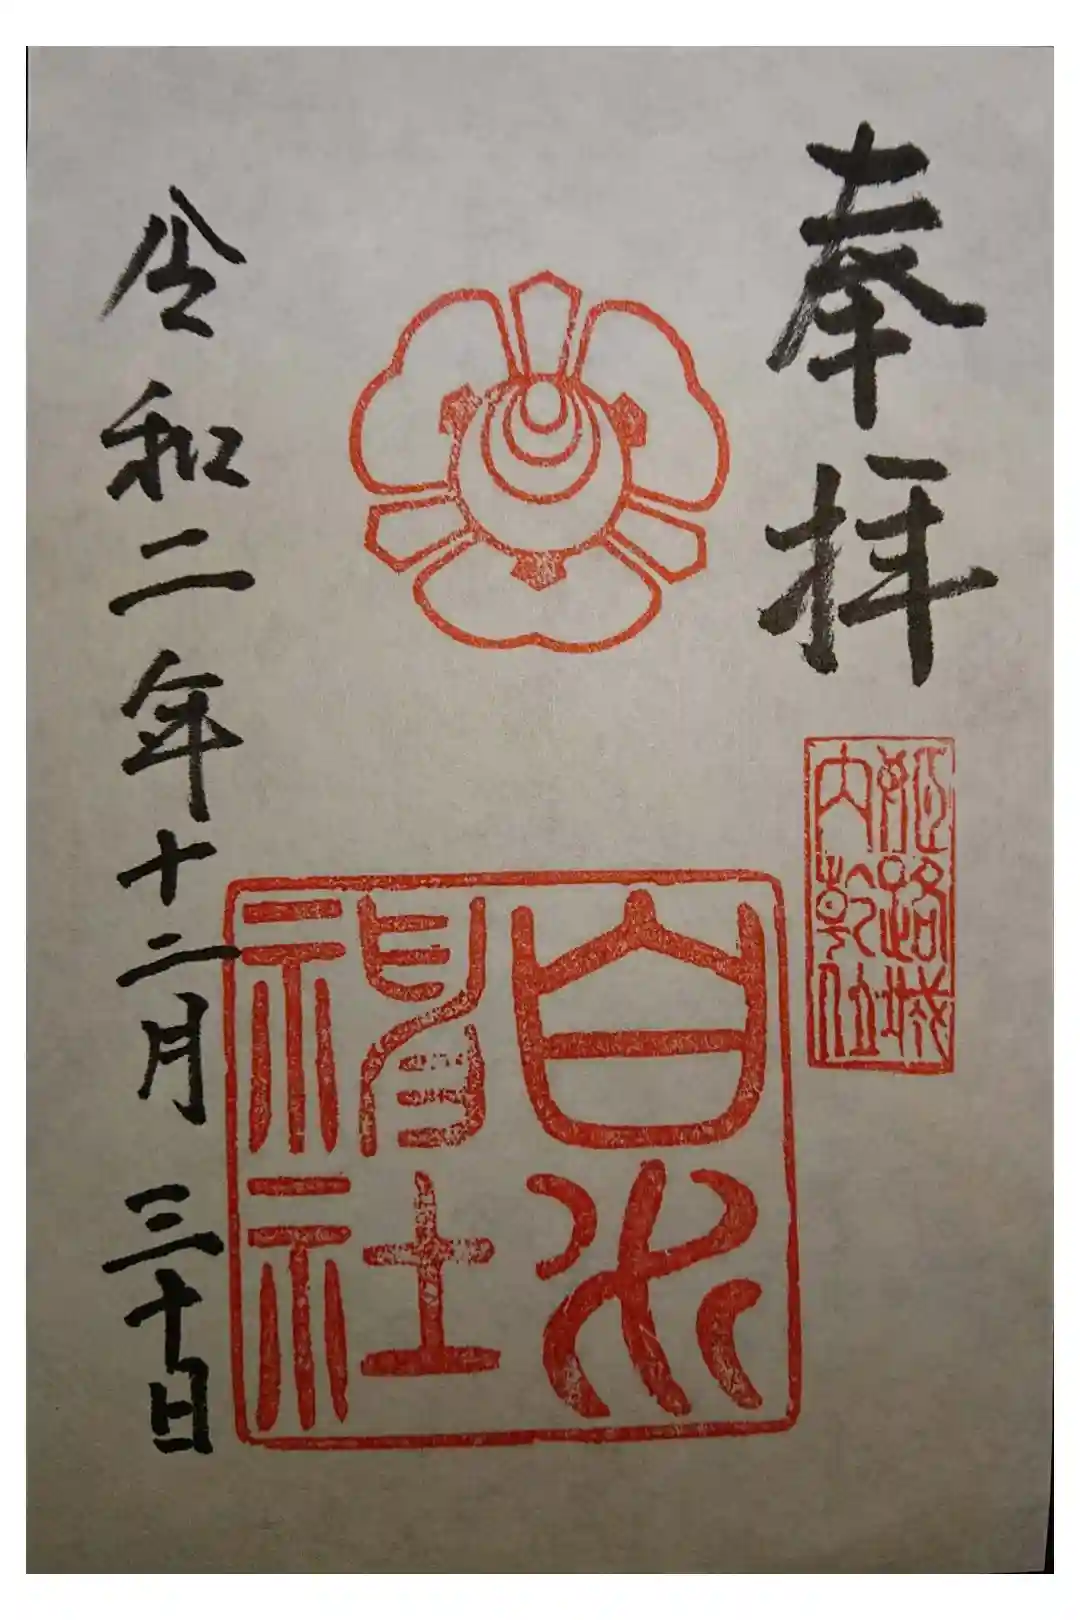 奉拝
路城
内
白水
社
令和二年十二月三十日